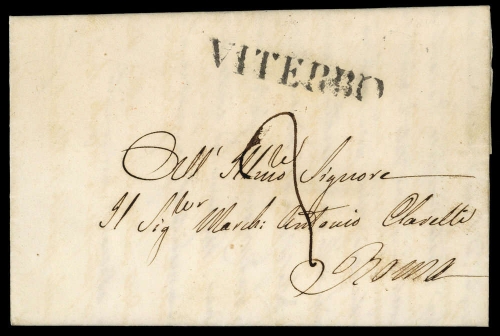 VITERBO
All' Illmo Signore
Il Sig March: Antonio Clarelli
Roma